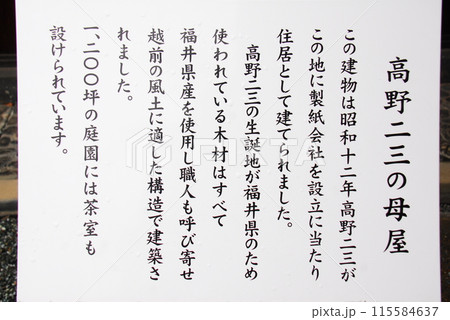 高野二三の母屋
この建物は昭和十二年高野二三が
この地に製紙会社を設立に当たり
住居として建てられました。
高野二三の生誕地が福井県のため
使われている木材はすべて
福井県産を使用し職人も呼び寄せ
越前の風土に適した構造で建築さ
れました。
一、二〇〇坪の庭園には茶室も
設けられています。
pixta
115584637